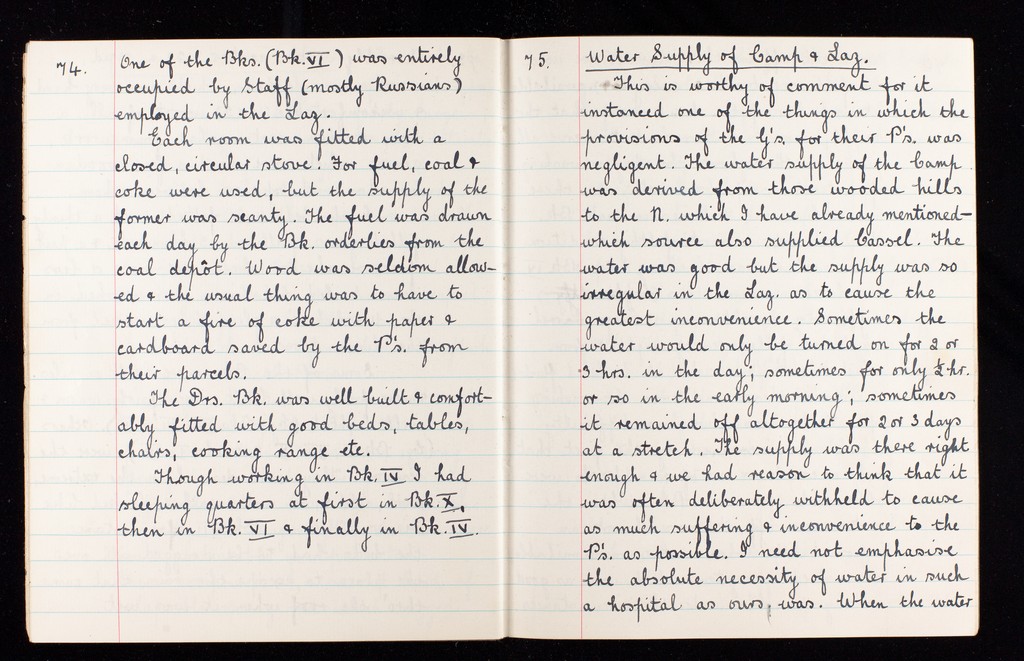 74.
One of the Bks. (Bk. VI) was entirely
occupied by Staff (mostly Russians)
employed in the Laz.
Each room was fitted with a
closed, circular stove. For fuel, coal &
coke were used, but the supply of the
former was scanty. The fuel was drawn
each day by the Bk. orderlies from the
coal depôt. Wood was seldom allow-
ed & the usual thing was to have to
start a fire of coke with paper &
cardboard saved by the P's. from
their parcels.
The Drs. Bk. was well built & comfort-
ably fitted with good beds, tables,
chairs, cooking range etc.
Though working in Bk. IV I had
sleeping quarters at first in Bk. X,
then in Bk. VI & finally in Bk. IV.
75.
Water Supply of Camp & Laz.
This is worthy of comment for it
instanced one of the things in which the
provisions of the G's. for their P's. was
negligent. The water supply of the Camp
was derived from those wooded hills
to the N. which I have already mentioned—
which source also supplied Cassel. The
water was good but the supply was so
irregular in the Laz. as to cause the
greatest inconvenience. Sometimes the
water would only be turned on for 2 or
3 hrs. in the day; sometimes for only ½ hr.
or so in the early morning; sometimes
it remained off altogether for 2 or 3 days
at a stretch. The supply was there right
enough & we had reason to think that it
was often deliberately withheld to cause
as much suffering & inconvenience to the
P's. as possible. I need not emphasise
the absolute necessity of water in such
a hospital as ours, was. When the water